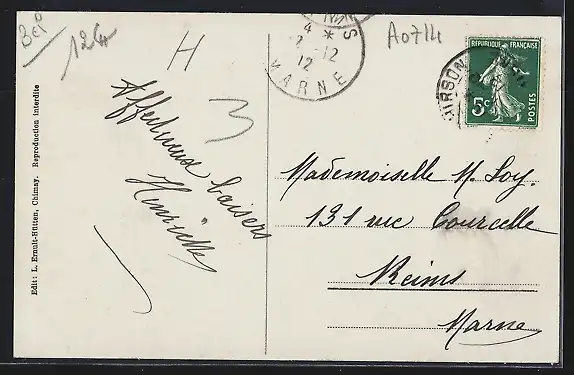 Bel°
124
H
3
4 *
2 -12
12
MARNE
A0714
RÉPUBLIQUE FRANÇAISE
5c
POSTES
HIRSON
Affectueux baisers
Henriette
Mademoiselle M. Loy.
131 rue Courcelle
Reims
Marne
Edit: L. Ernult-Hütten, Chimay. Reproduction interdite